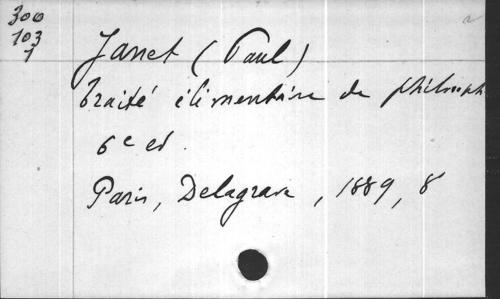 300
103
1
Janet (Paul)
traité élémentaire de philosoph
6e ed.
Paris, Delagrave, 1889, 8